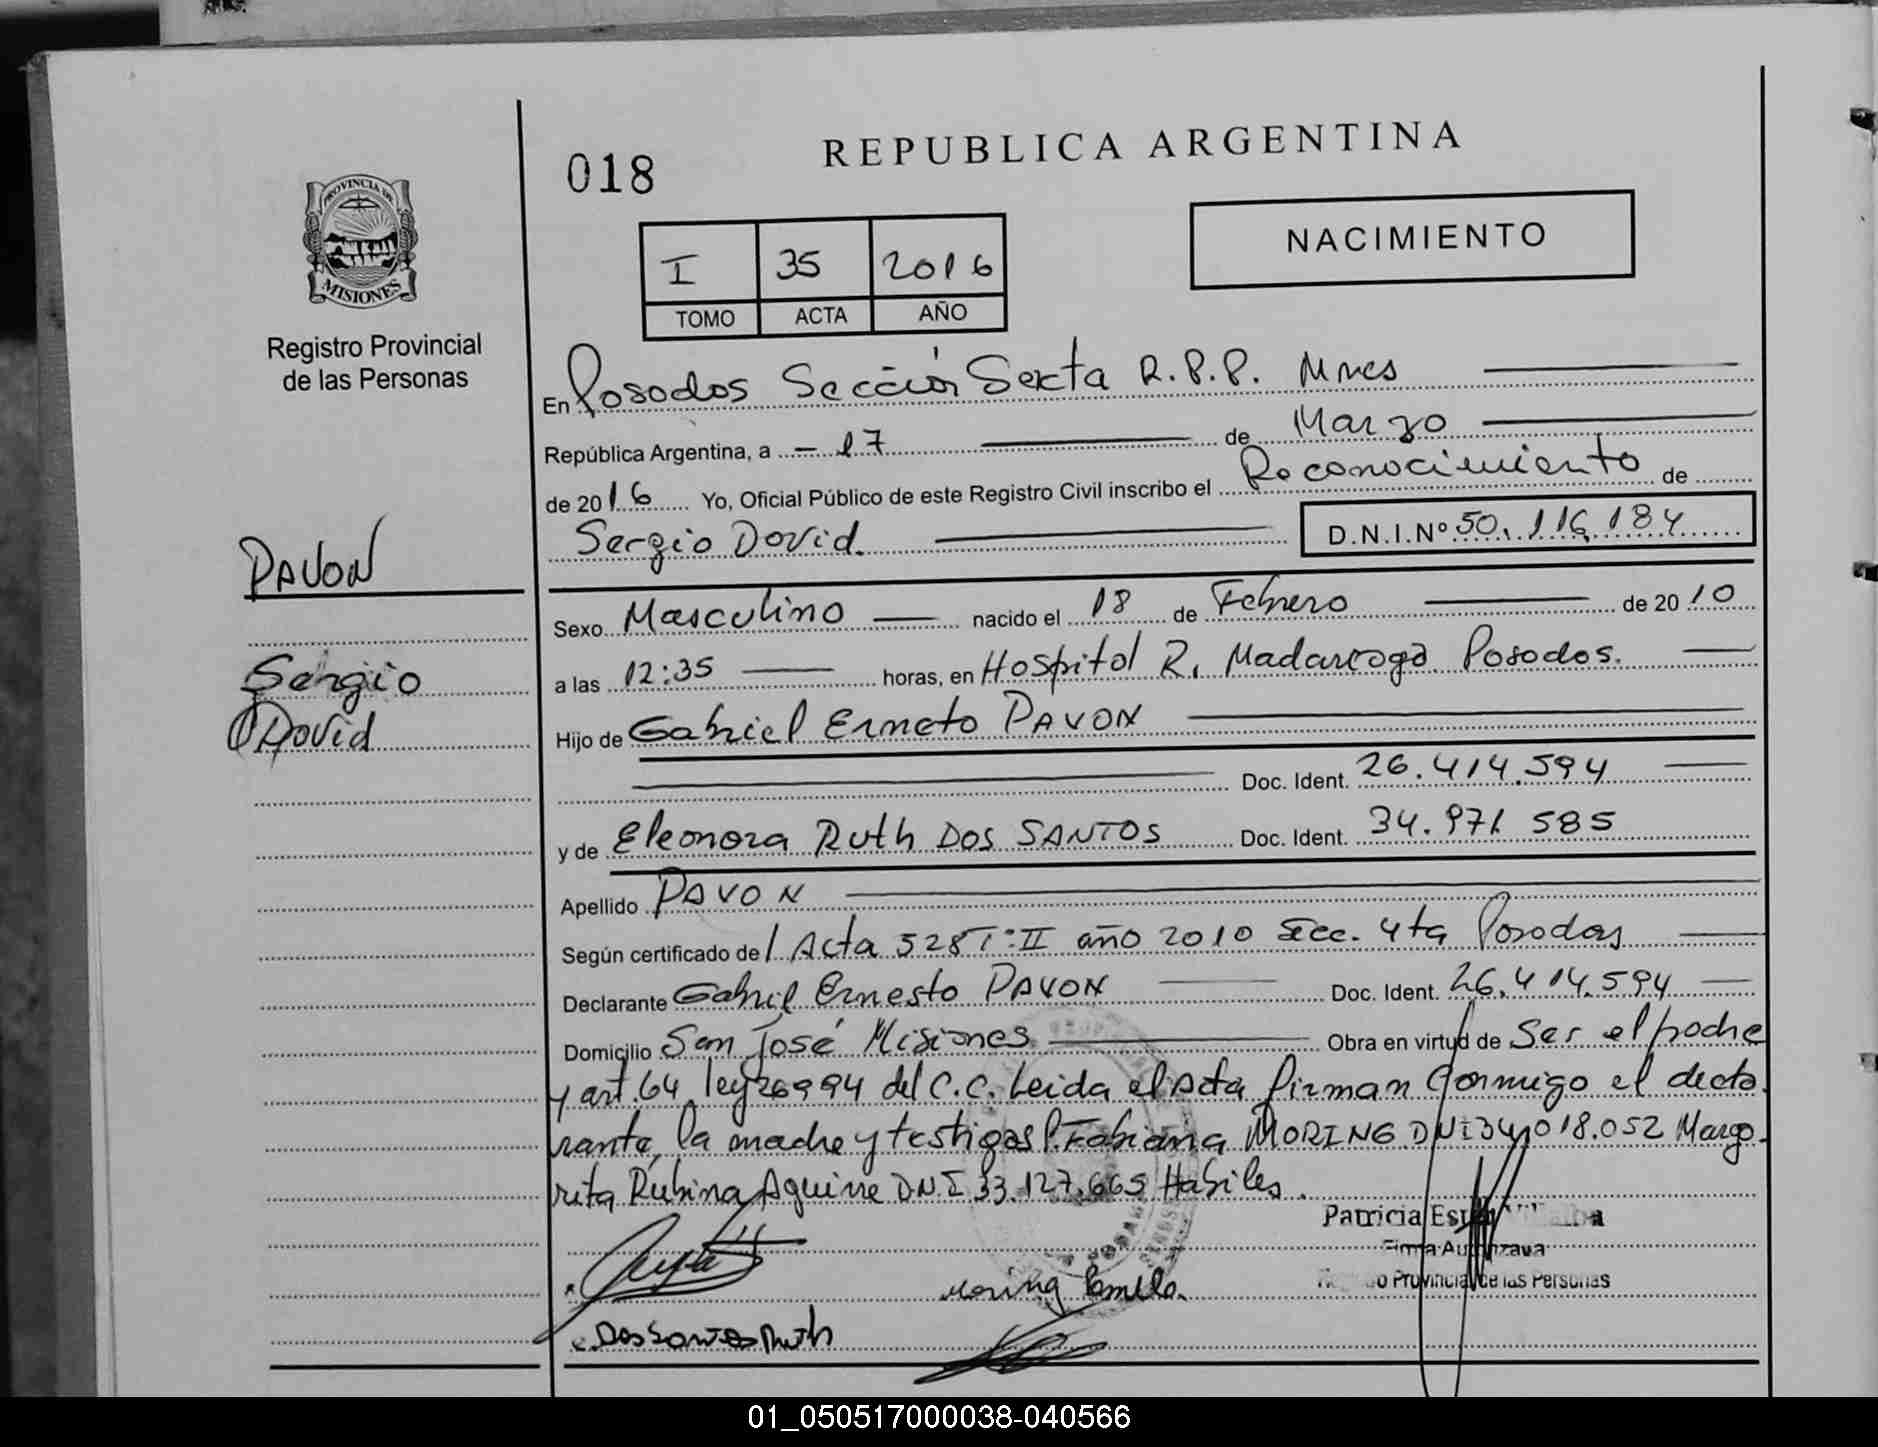 018
REPUBLICA ARGENTINA
NACIMIENTO
I 35 2016
TOMO ACTA AÑO
PROVINCIA DE
MISIONES
Registro Provincial
de las Personas
En Posadas Sección Sexta R.P.P. Mnes
República Argentina, a - 17 de Marzo
de 2016 Yo, Oficial Público de este Registro Civil inscribo el Reconocimiento de
Sergio David. D.N.I.Nº 50.116.184
PAVON
Sergio
David
Sexo Masculino nacido el 18 de Febrero de 2010
a las 12:35 horas, en Hospital R. Madariaga Posadas.
Hijo de Gabriel Erneto PAVON
Doc. Ident. 26.414.594
y de Eleonora Ruth DOS SANTOS Doc. Ident. 34.971.585
Apellido PAVON
Según certificado de Acta 528 T:II año 2010 Secc. 4ta Posadas
Declarante Gabriel Ernesto PAVON Doc. Ident. 26.414.594
Domicilio San José Misiones Obra en virtud de Ser el padre
y art. 64 ley 26994 del C.C. Leida el Acta firman conmigo el decla
rante, la madre y testigos Fabiana MORING DNI 34.018.052 Marga-
rita Rubina Aguirre D.N.I 33.127.665 Habiles.
Patricia
Firma Autorizada
Provincial de las Personas
Moring
Dos Santos Ruth
01_050517000038-040566